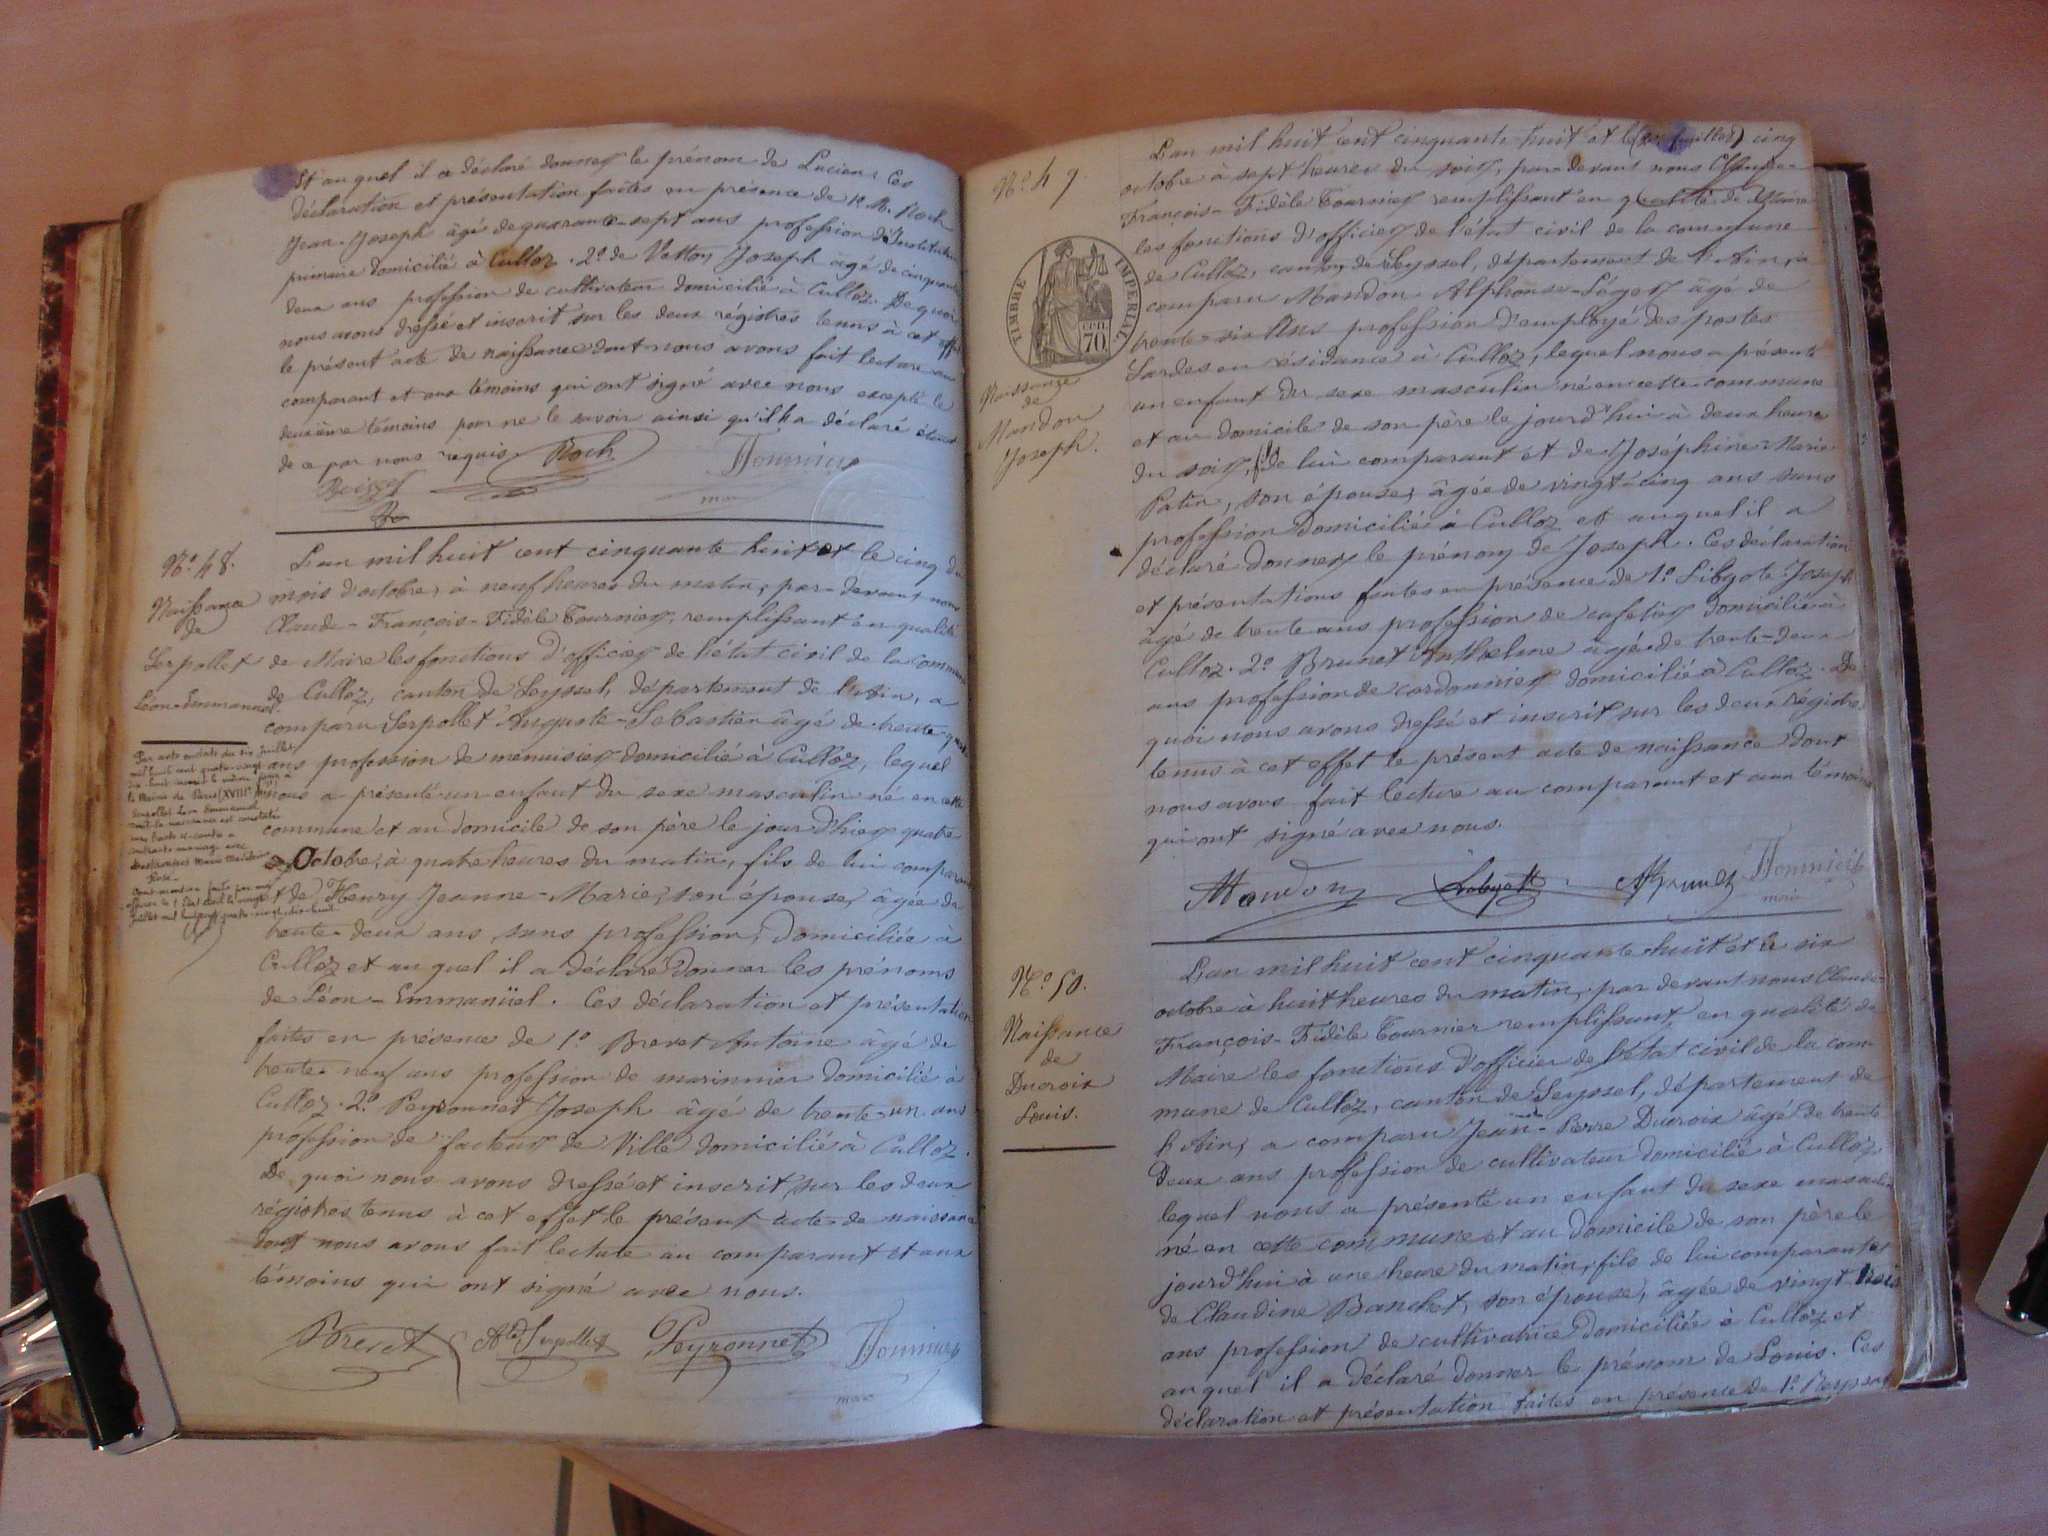 Et auquel il a déclaré donner le prénom de Lucien. Ces
déclaration et présentation faites en présence de 1° M. Roch
Jean-Joseph âgé de quarante-sept ans profession d'Instituteur
primaire domicilié à Culloz. 2° de Vetton Joseph âgé de cinquante
deux ans profession de cultivateur domicilié à Culloz. De quoi
nous avons dressé et inscrit sur les deux régistres tenus à cet effet
le présent acte de naissance dont nous avons fait lecture au
comparant et aux témoins qui ont signé avec nous excepté le
deuxième témoins pour ne le savoir ainsi qu'il l'a déclaré étant
de ce par nous requis. Roch
N° 48.
Naissance
de
Serpollet
Léon-Emmanuel
L'an mil huit cent cinquante huit et le cinq du
mois d'octobre, à neuf heures du matin, par-devant nous
Claude-François-Fidèle Tournier, remplissant en qualité
de Maire les fonctions d'officier de l'état civil de la commune
de Culloz, canton de Seyssel, département de l'Ain, a
comparu Serpollet Auguste-Sébastien âgé de trente-
ans profession de menuisier domicilié à Culloz, lequel
nous a présenté un enfant du sexe masculin né en cette
commune et au domicile de son père le jour d'hier quatre
Octobre, à quatre heures du matin, fils de lui comparant
et de Henry Jeanne-Marie, son épouse, âgée de
trente-deux ans, sans profession, domiciliée à
Culloz et auquel il a déclaré donner les prénoms
de Léon-Emmanüel. Ces déclaration et présentation
faites en présence de 1° Brevet Antoine âgé de
trente-neuf ans profession de marinnier domicilié à
Culloz. 2° Peyronnet Joseph âgé de trente-un ans
profession de facteur de Ville domicilié à Culloz.
De quoi nous avons dressé et inscrit sur les deux
régistres tenus à cet effet le présent acte de naissance
dont nous avons fait lecture au comparant et aux
témoins qui ont signé avec nous.
Brevet Serpollet Peyronnet Tournier
maire
Par acte en date du six Juillet
mil huit cent quatre-vingt
dix-huit inscrit le même jour à
la Mairie de Paris (XVIIIe arr)
Serpollet Léon Emmanuel
dont la naissance est constatée
contracté mariage avec
N° 49.
TIMBRE IMPERIAL
70
Naissance
de
Mandon
Joseph.
L'an mil huit cent cinquante-huit et le cinq
octobre à sept heures du soir, par-devant nous Claude-
François-Fidèle Tournier remplissant en qualité de Maire
les fonctions d'officier de l'état civil de la commune
de Culloz, canton de Seyssel, département de l'Ain, a
comparu Mandon Alphonse-Léger âgé de
trente-six ans profession d'employé des postes
Sardes en résidance à Culloz, lequel nous a présenté
un enfant du sexe masculin né en cette commune
et au domicile de son père le jourd'hui à deux heures
du soir, fils de lui comparant et de Joséphine-Marie
Patin, son épouse, âgée de vingt-cinq ans sans
profession domiciliée à Culloz et auquel il a
déclaré donner le prénom de Joseph. Ces déclaration
et présentations faites en présence de 1° Libgote Joseph
âgé de trente ans profession de cafetier domicilié à
Culloz. 2° Brunet Anthelme âgé de trente-deux
ans profession de cordonnier domicilié à Culloz. De
quoi nous avons dressé et inscrit sur les deux régistres
tenus à cet effet le présent acte de naissance dont
nous avons fait lecture au comparant et aux témoins
qui ont signé avec nous.
Mandon Brunet Tournier
maire
N° 50.
Naissance
de
Ducroix
Louis.
L'an mil huit cent cinquante-huit et le six
octobre à huit heures du matin, par devant nous Claude-
François-Fidèle Tournier remplissant en qualité de
Maire les fonctions d'officier de l'état civil de la com
mune de Culloz, canton de Seyssel, département de
l'Ain, a comparu Jean-Pierre Ducroix âgé de trente
Deux ans profession de cultivateur domicilié à Culloz,
lequel nous a présenté un enfant du sexe masculin
né en cette commune et au domicile de son père le
jourd'hui à une heure du matin, fils de lui comparant et
de Claudine Banchet, son épouse, âgée de vingt trois
ans profession de cultivatrice domiciliée à Culloz et
auquel il a déclaré donner le prénom de Louis. Ces
déclaration et présentation faites en présence de 1°